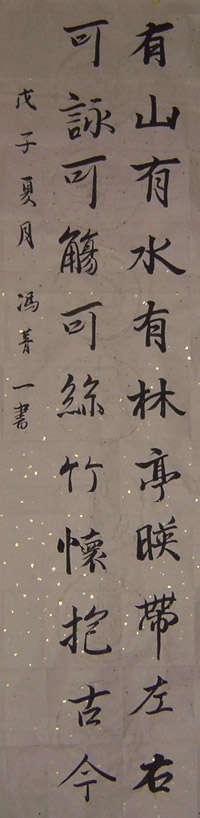 有山有水有林亭暎帶左右
可詠可觴可絲竹懷抱古今
戊子夏月 冯菁一書